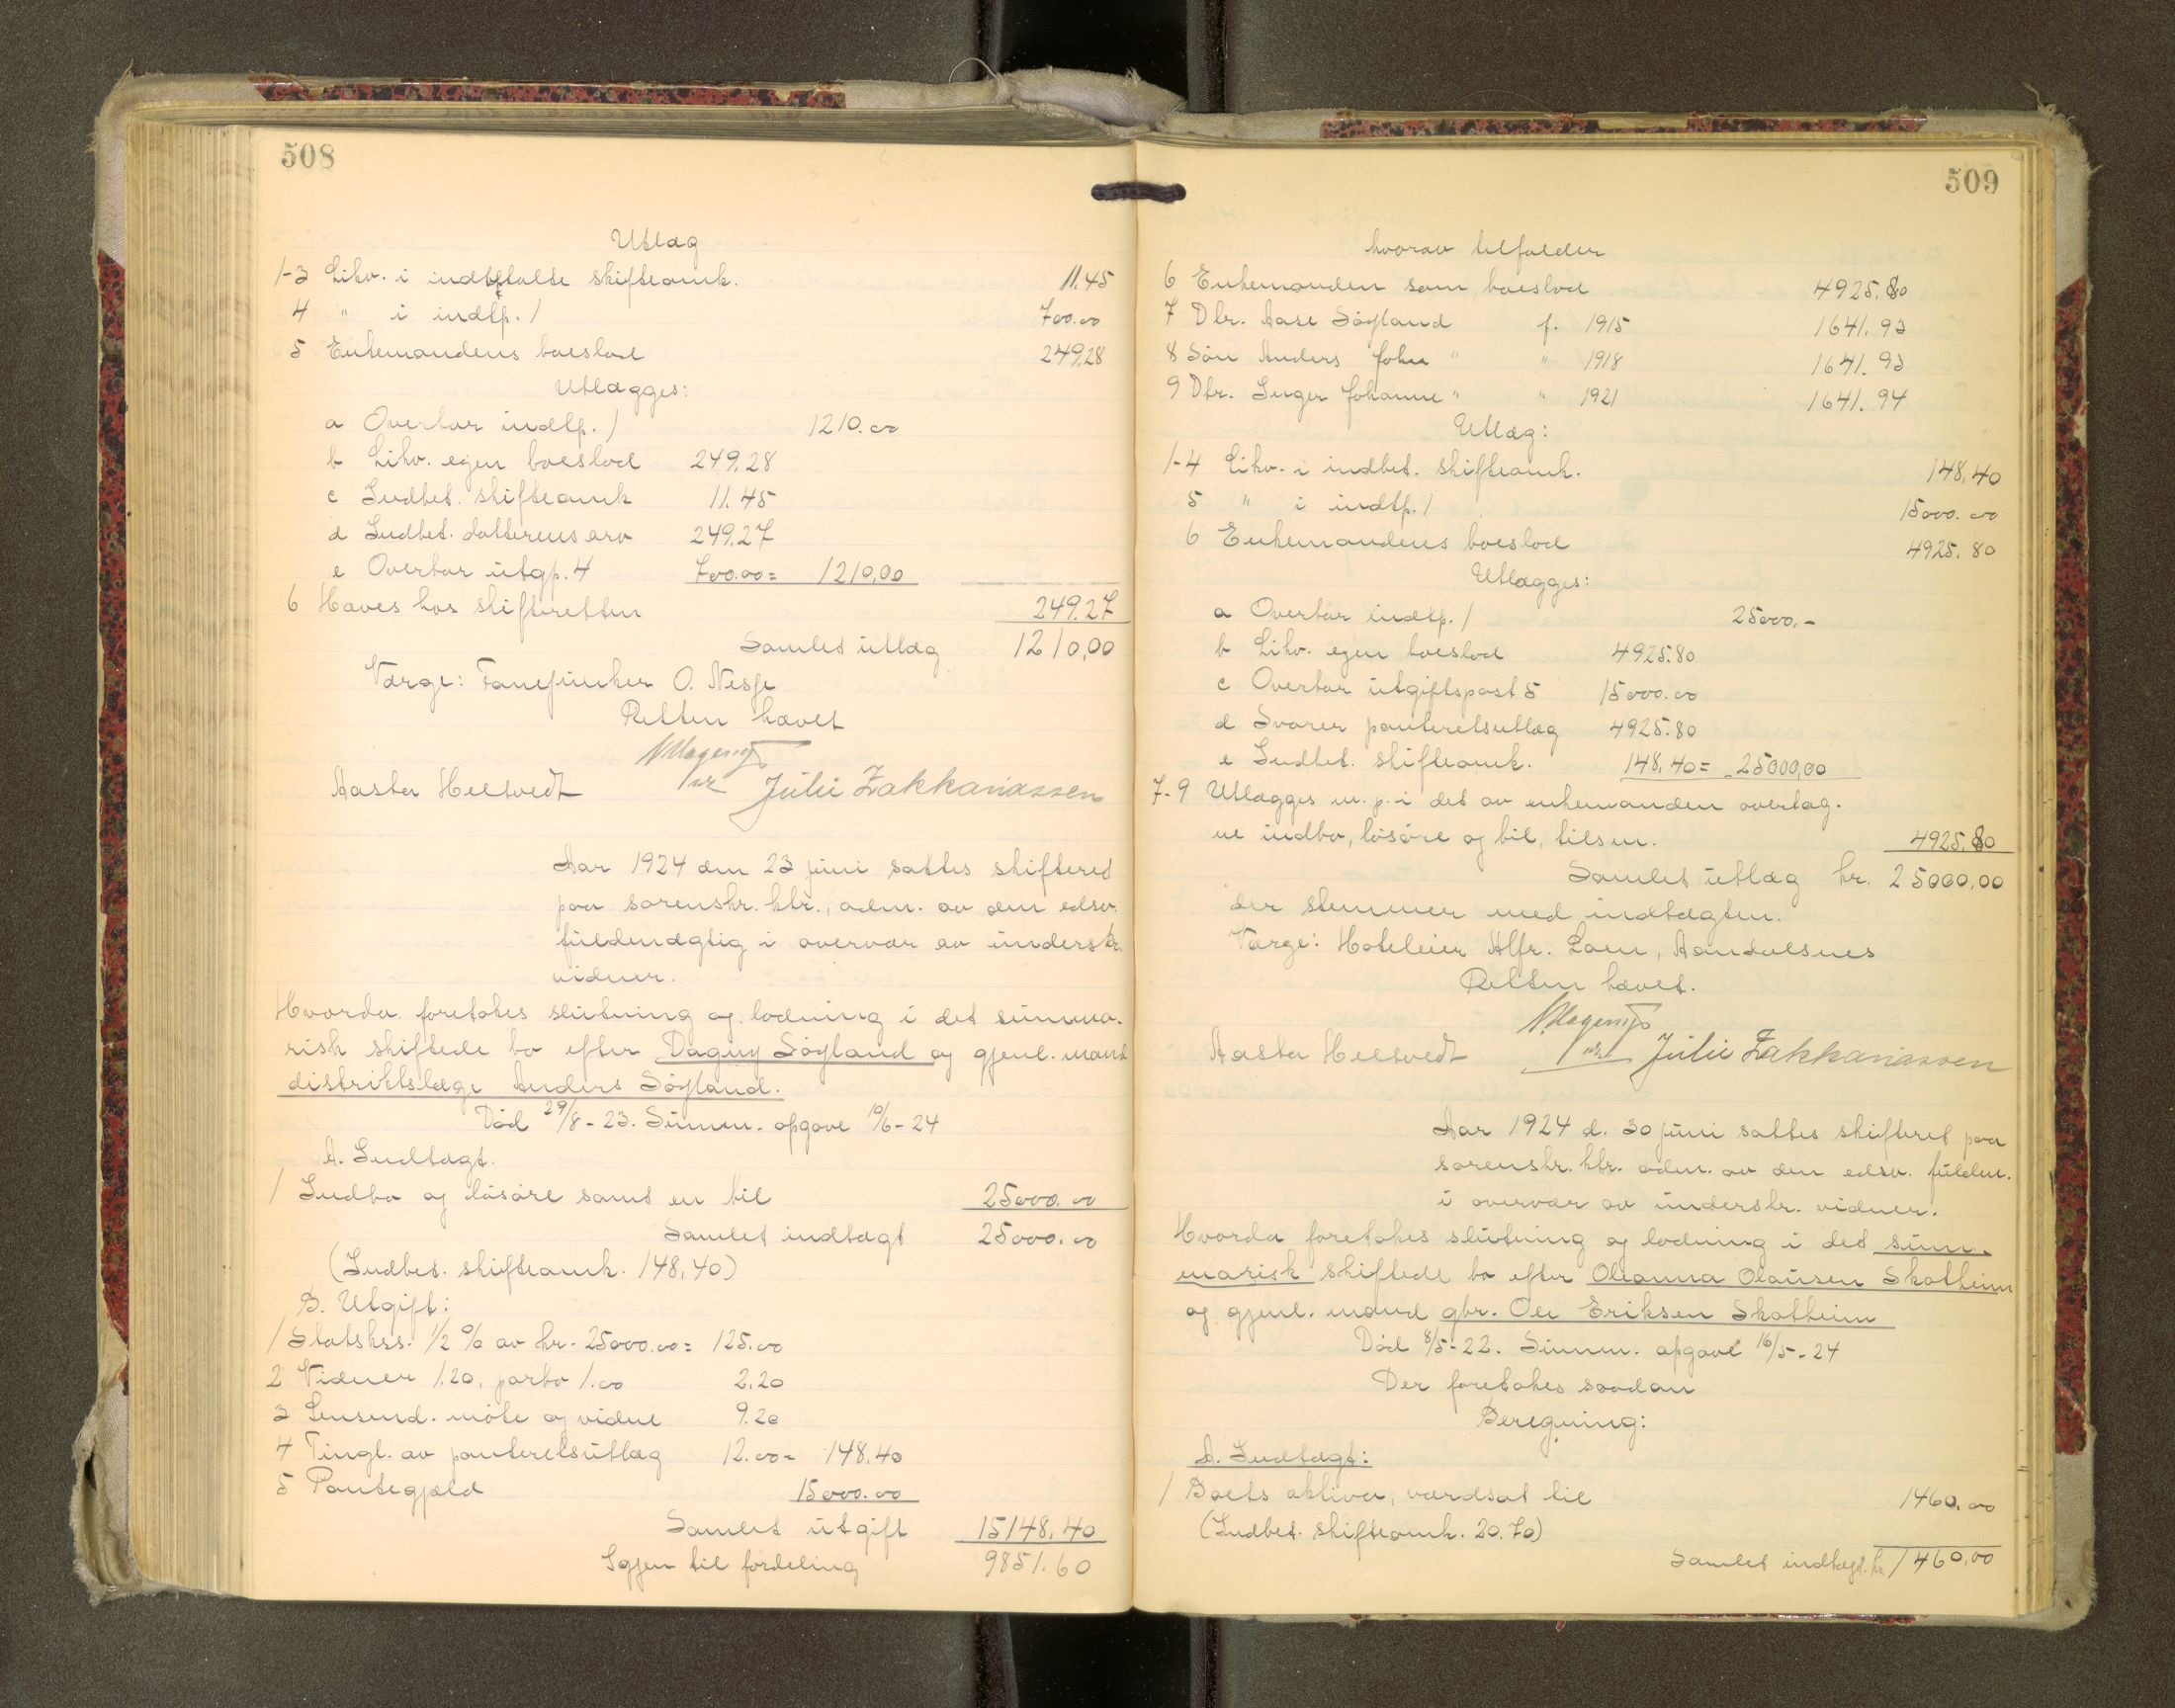 508
Utlæg
1-3 Likv. i indbetalte skifteomk. 11.45
4 " i indtp. 1 700.00
5 Enkemandens boeslod 249.28
Utlægges:
a Overtar indtp. 1 1210.00
b Likv. egen boeslod 249.28
c Indbet. skifteomk 11.45
d Indbet. datterens arv 249.27
e Overtar utgp. 4 700.00 = 1210,00
6 Haves hos skifteretten 249.27
Samlet utlæg 1210,00
Værge: Fanejunker O. Nesje
Retten hævet
Aasta Heltvedt Julie Zakkariassen
Aar 1924 den 23 juni sattes skifteret
paa sorenskr. ktr., adm. av den edsv.
fuldmægtig i overvær av underskr.
vidner.
Hvorda foretokes slutning og lodning i det summa-
risk skiftede bo efter Dagny Søyland og gjenl. mand
distriktslæge Anders Søyland.
Død 29/8-23. Summ. opgave 10/6-24
A. Indtægt.
1 Indbo og løsøre samt en bil 25000.00
Samlet indtægt 25000.00
(Indbet. skifteomk. 148,40)
B. Utgift:
1 Statskss. 1/2 % av kr. 25000.00 = 125.00
2 Vidner 1.20, porto 1.00 2.20
3 Lensmd. møte og vidne 9.20
4 Tingl. av panteretsutlæg 12.00 = 148.40
5 Pantegjæld 15000.00
Samlet utgift 15148,40
Igjen til fordeling 9851.60
509
hvorav tilfalder
6 Enkemanden som boeslod 4925.80
7 Dtr. Aase Søyland f. 1915 1641.93
8 Søn Anders John " " 1918 1641.93
9 Dtr. Inger Johanne " " 1921 1641.94
Utlæg:
1-4 Likv. i indbet. skifteomk. 148,40
5 " i indtp. 1 15000.00
6 Enkemandens boeslod 4925.80
Utlægges:
a Overtar indtp. 1 25000.-
b Likv. egen boeslod 4925.80
c Overtar utgiftspost 5 15000.00
d Svarer panteretsutlæg 4925.80
e Indbet. skifteomk. 148,40 = 25000,00
7-9 Utlægges m. p. i det av enkemanden overtag-
ne indbo, løsøre og bil, tilsm. 4925.80
Samlet utlæg kr. 25000,00
der stemmer med indtægten.
Værge: Hoteleier Alfr. Loen, Aandalsnes
Retten hævet.
Aasta Heltvedt Julie Zakkariassen
Aar 1924 d. 30 juni sattes skifteret paa
sorenskr. ktr. adm. av den edsv. fuldm.
i overvær av underskr. vidner.
Hvorda foretokes slutning og lodning i det sum-
marisk skiftede bo efter Oleanna Olausen Skotheim
og gjenl. mand gbr. Ole Eriksen Skotheim
Død 8/5-22. Summ. opgave 16/5-24
Der foretokes saadan
Beregning:
A. Indtægt:
1 Boets aktiva, værdsat til 1460.00
(Indbet. skifteomk. 20.70)
Samlet indtægt. kr. 1460,00